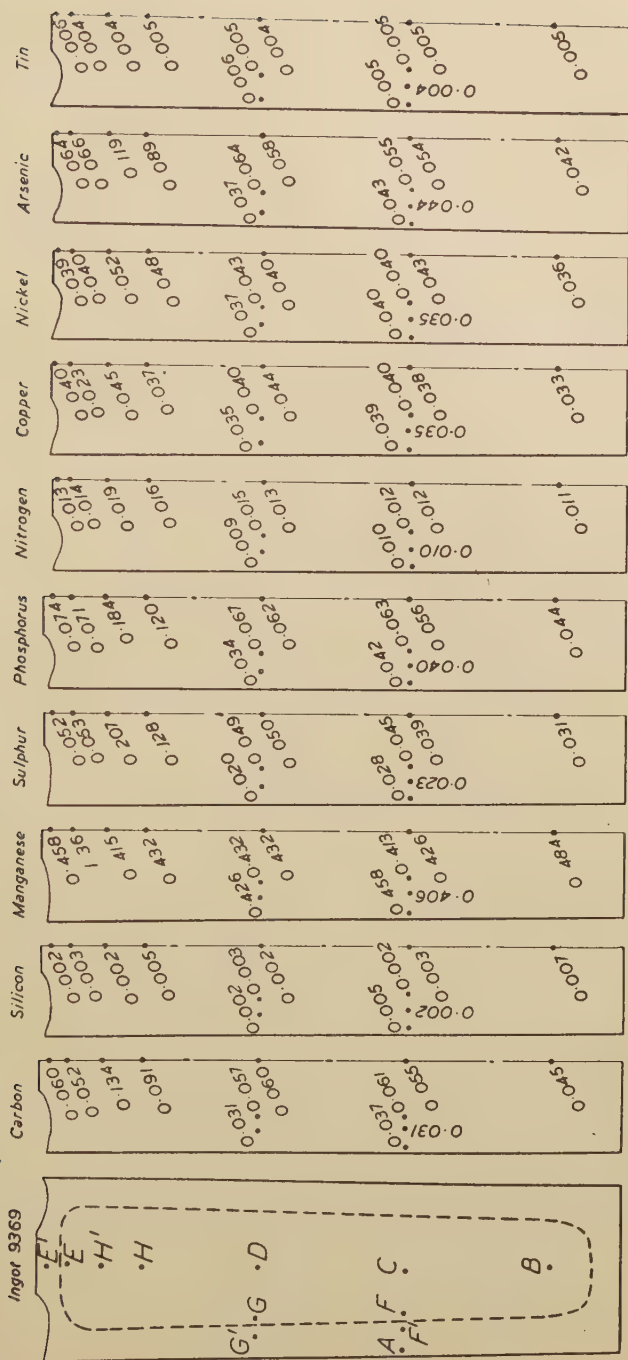 Ingot 9369
E'
E
H'
H
G'
G
D
A
F
F'
C
B
Carbon
0.060
0.052
0.134
0.091
0.031
0.057
0.060
0.037
0.061
0.055
0.031
0.045
Silicon
0.002
0.003
0.002
0.005
0.002
0.003
0.002
0.005
0.002
0.003
0.002
0.007
Manganese
0.458
1.36
0.415
0.432
0.426
0.432
0.432
0.458
0.413
0.426
0.406
0.484
Sulphur
0.052
0.053
0.207
0.128
0.020
0.049
0.050
0.028
0.045
0.039
0.023
0.031
Phosphorus
0.074
0.071
0.184
0.120
0.034
0.067
0.062
0.042
0.063
0.056
0.040
0.044
Nitrogen
0.013
0.014
0.019
0.016
0.009
0.015
0.013
0.010
0.012
0.012
0.010
0.011
Copper
0.040
0.023
0.045
0.037
0.035
0.040
0.044
0.039
0.040
0.038
0.035
0.033
Nickel
0.039
0.040
0.052
0.048
0.037
0.043
0.040
0.040
0.040
0.043
0.035
0.036
Arsenic
0.064
0.066
0.119
0.089
0.037
0.064
0.058
0.043
0.055
0.054
0.044
0.042
Tin
0.004
0.004
0.005
0.006
0.005
0.004
0.005
0.005
0.005
0.004
0.005